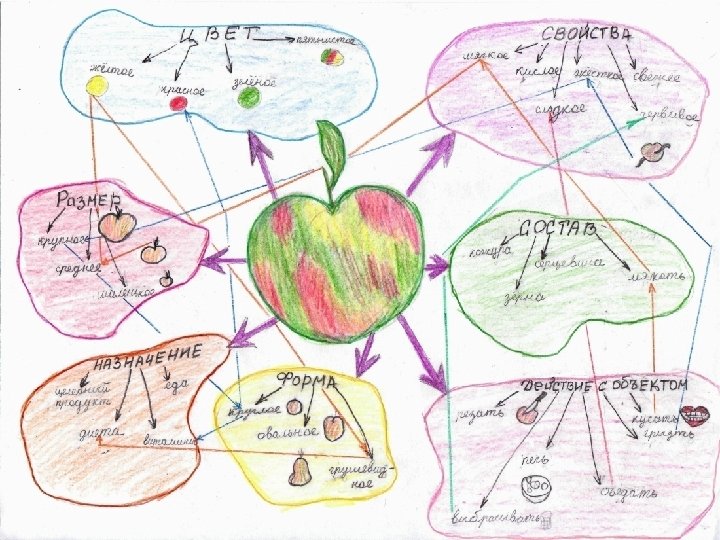 ЦВЕТ
жёлтое
красное
зелёное
пятнистое
СВОЙСТВА
мягкое
кислое
сладкое
жёсткое
свежее
червивое
РАЗМЕР
крупное
среднее
маленькое
СОСТАВ
кожура
серцевина
зерна
мякоть
НАЗНАЧЕНИЕ
целебный
продукт
диета
витамины
еда
ФОРМА
круглое
овальное
грушевид-
ное
ДЕЙСТВИЕ С ОБЪЕКТОМ
резать
печь
выбрасывать
объедать
кусать
грызть